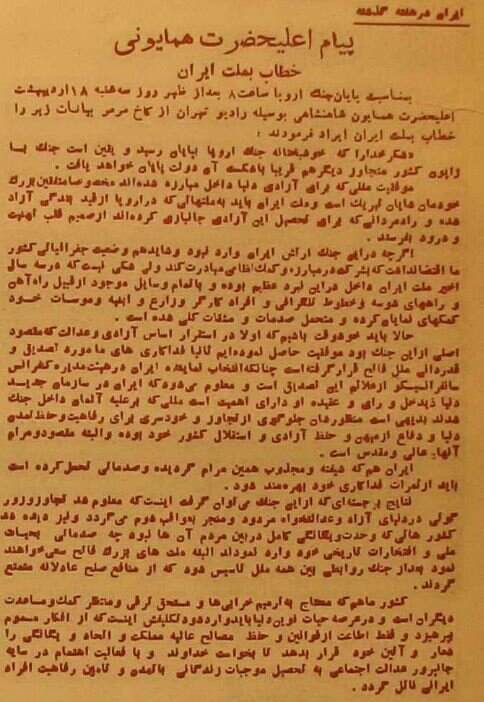 ایران در هفته گذشته
پیام اعلیحضرت همایونی
خطاب بملت ایران
بمناسبت پایان جنگ اروپا ساعت ۸ بعد از ظهر روز سه شنبه ۱۸ اردیبهشت
اعلیحضرت همایون شاهنشاهی بوسیله رادیو تهران از کاخ مرمر بیانات زیر را
خطاب بملت ایران ایراد فرمودند :
«شکر خدا را که خوشبختانه جنگ اروپا بپایان رسید و یقین است جنگ با
ژاپون کشور متجاوز دیگر هم قریبا با شکست آن دولت پایان خواهد یافت .
موفقیت مللی که برای آزادی دنیا داخل مبارزه شده‌اند مخصوصا متفقین بزرگ
خودمان شایان تبریک است و ملت ایران باید به ملتهائی که در اروپا از قید بندگی آزاد
شده و رادمردانی که برای تحصیل این آزادی جانبازی کرده‌اند از صمیم قلب تهنیت
و درود بفرستد .
اگرچه در این جنگ ارتش ایران وارد نبود و شاید هم وضعیت جغرافیائی کشور
ما اقتضا نداشت که بشرکت در مبارزه و کمک نظامی مبادرت کند ولی شکی نیست که در سه سال
اخیر ملت ایران داخل در این نبرد عظیم بوده و با تمام وسایل موجود از قبیل راه آهن
و راههای شوسه و خطوط تلگرافی و افراد کارگر و زارع و ابنیه و موسسات خود
کمکهای نمایان کرده و متحمل صدمات و مشقات کلی شده است .
حالا باید خوشوقت باشیم که اولا در استقرار اساس آزادی و عدالت که مقصود
اصلی از این جنگ بود موفقیت حاصل نموده‌ایم ثانیا فداکاری های ما مورد تصدیق و
قدردانی ملل فاتح قرار گرفته است چنانکه انتخاب نماینده ایران در هیئت مدیره کنفرانس
سانفرانسیسکو از علائم این تصدیق است و معلوم می‌دود که ایران در سازمان جدید
دنیا ذیدخل و رای و عقیده او دارای اهمیت است مللی که بر علیه آلمان داخل جنگ
شدند بدیهی است منظورشان جلوگیری از تجاوز و خودسری برای رفاهیت و حفظ تمدن
دنیا و دفاع از میهن و حفظ آزادی و استقلال کشور خود بوده و البته مقصود و مرام
آنها عالی و مقدس است .
ایران هم که شیفته و مجذوب همین مرام گردیده و صدماتی تحمل کرده است
باید از ثمرات فداکاری خود بهره‌مند شود .
نتایج برجسته‌ای که از این جنگ می‌توان گرفت اینست که معلوم شد تجاوز و زور
گوئی در دنیای آزاد و عدالتخواه مردود و منجر بعواقب شوم می‌گردد و نیز دیده شد
کشور هائی که وحدت و یگانگی کامل در بین مردم آن ها نبود چه صدماتی بحیثیات
ملی و افتخارات تاریخی خود وارد نمودند البته ملت های بزرگ فاتح سعی خواهند
نمود بعد از جنگ روابطی بین همه ملل تاسیس شود که از منافع صلح عادلانه متمتع
گردند .
کشور ما هم که محتاج به ترمیم خرابی‌ها و مستحق ترقی و منتظر کمک و مساعدت
دیگران است و در عرصه حیات نوین دنیا باید وارد شود تکلیفش اینست که از افکار مسموم
بپرهیزد و فقط اطاعت از قوانین و حفظ مصالح عالیه مملکت و اتحاد و یگانگی را
شعار و آئین خود قرار بدهد تا بخواست خداوند و با فعالیت اهتمام در سایه
جانپرور عدالت اجتماعی به تحصیل موجبات زندگانی با تمدن و تامین رفاهیت افراد
ایرانی نائل گردد .